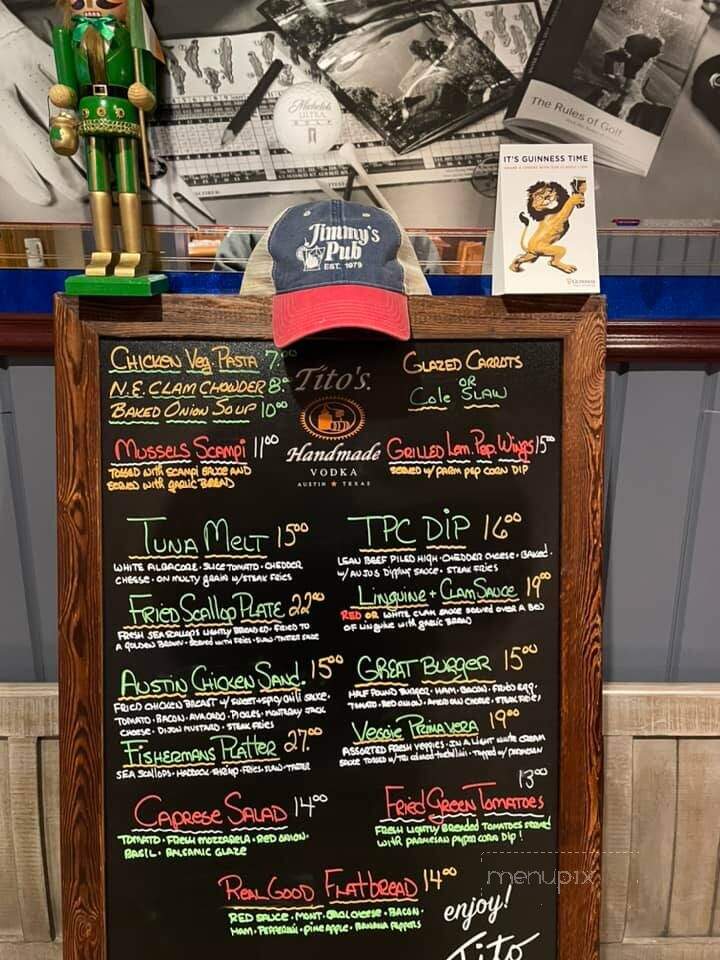 The Rules of Golf
Michelob
ULTRA
GOLF
IT'S GUINNESS TIME
GUINNESS
Jimmy's
Pub
EST. 1979
CHICKEN Veg. PASTA 7.00
N.E. CLAM CHOWDER 8.00
BAKED ONION SOUP 10.00
Tito's.
Handmade
VODKA
AUSTIN ★ TEXAS
GLAZED CARROTS
OR
Cole SLAW
MUSSELS SCAMPI 11.00
TOSSED with SCAMPI SAUCE AND
SERVED with GARLIC BREAD
GRILLED Lem. Pep. Wings 15.00
SERVED w/ PARM PEP CORN DIP
TUNA MELT 15.00
WHITE ALBACORE · SLICE TOMATO · CHEDDER
CHEESE · ON MULTY GRAIN w/ STEAK FRIES
TPC DIP 16.00
LEAN BEEF PILED HIGH · CHEDDER CHEESE · BAKED ·
w/ AU JUS DIPPING SAUCE · STEAK FRIES
FRIED Scallop PLATE 22.00
FRESH SEA SCALLOPS LIGHTLY BREADED · FRIED TO
A GOLDEN BROWN · SERVED WITH FRIES · SLAW · TARTER SAUCE
LINGUINE + CLAM SAUCE 19.00
RED OR WHITE CLAM SAUCE SERVED OVER A BED
OF LINGUINE with GARLIC BREAD
AUSTIN CHICKEN SAND. 15.00
FRIED CHICKEN BREAST w/ SWEET + SPICY CHILI SAUCE ·
TOMATO · BACON · AVACADO · PICKLES · MONTEREY JACK
CHEESE · DIJON MUSTARD · STEAK FRIES
GREAT BURGER 15.00
HALF POUND BURGER · HAM · BACON · FRIED EGG ·
TOMATO · RED ONION · AMERICAN CHEESE · STEAK FRIES
FISHERMANS PLATTER 27.00
SEA SCALLOPS · HADDOCK · SHRIMP · FRIES · SLAW · TARTER
VEGGIE PRIMAVERA 19.00
ASSORTED FRESH VEGGIES · IN A LIGHT WHITE CREAM
SAUCE TOSSED w/ TRI COLORED TORTELLINI · TOPPED w/ PARMESAN
CAPRESE SALAD 14.00
TOMATO · FRESH MOZZARELLA · RED ONION ·
BASIL · BALSAMIC GLAZE
13.00
FRIED GREEN TOMATOES
FRESH LIGHTLY BREADED TOMATOES SERVED
WITH PARMESAN PEPPER CORN DIP!
REAL GOOD FLATBREAD 14.00
RED SAUCE · MONT. JACK CHEESE · BACON ·
HAM · PEPPERONI · PINEAPPLE · BANANA PEPPERS
menupix
enjoy!
Tito